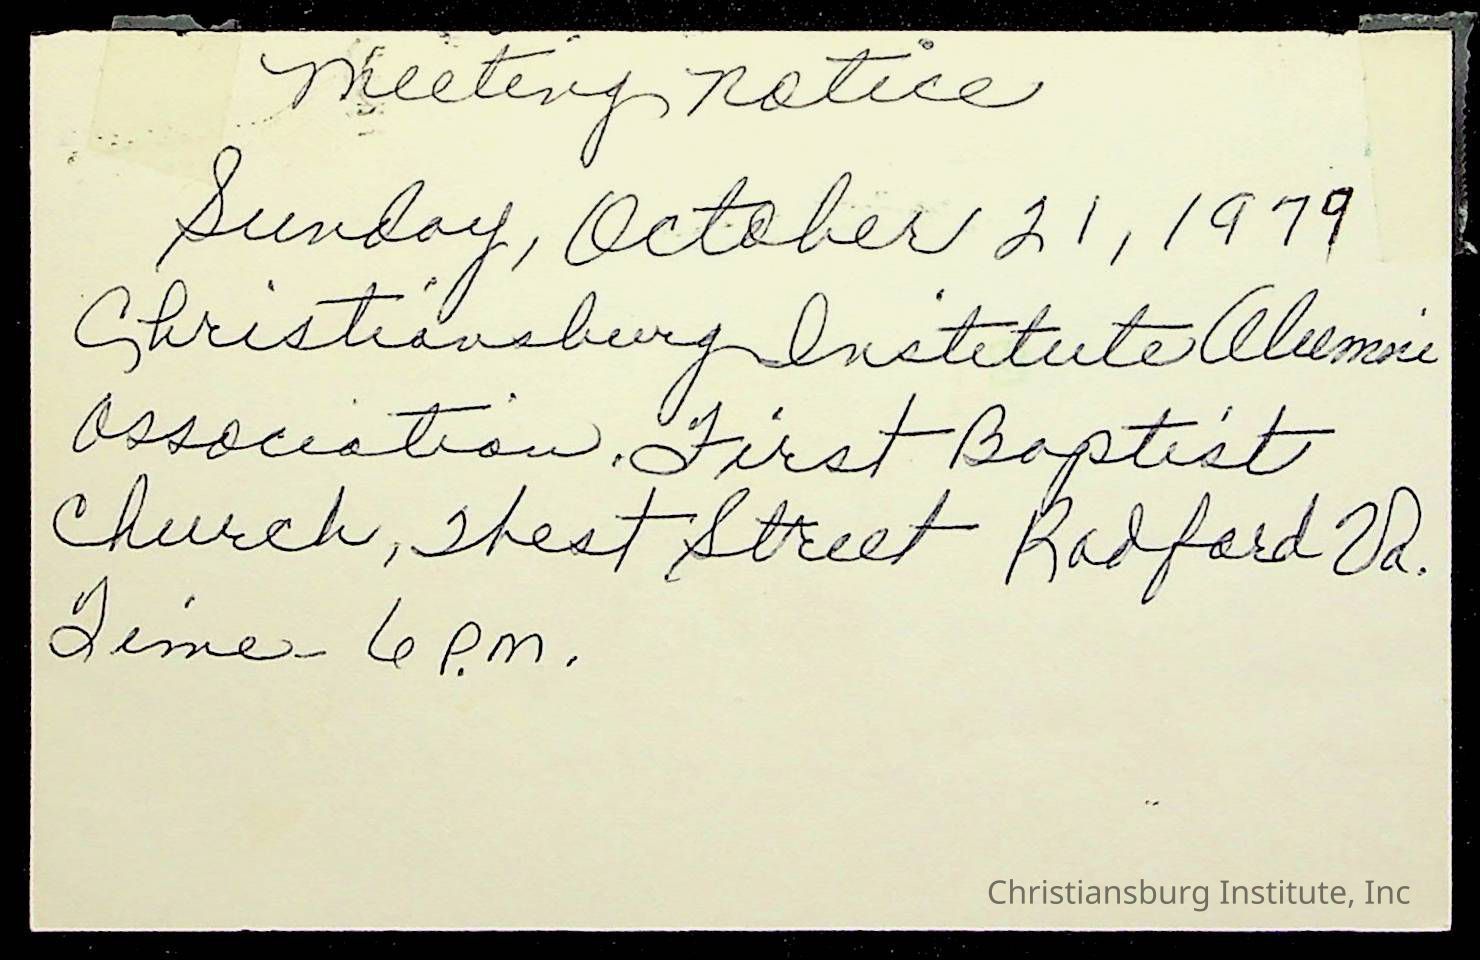 Meeting notice
Sunday, October 21, 1979
Christiansburg Institute Alumni
Association. First Baptist
Church, West Street Radford Va.
Time - 6 P.M.
Christiansburg Institute, Inc